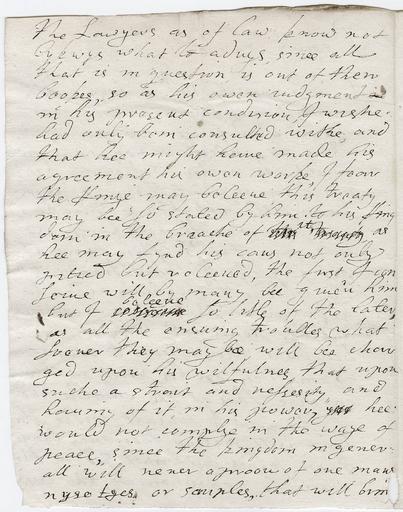 The Lawyers as of Law know not
allways what to advys, since all
that is in question is out of ther
boockes, so as his owen judgment
in his present condision I wishe
had only bein consulted withe, and
that hee might have made his
agreement his owen worke, I fear
the Kinge may beleeve this treaty
may bee so stated by him to his King
dom in the breache of as
hee may fynd his caus not only
pitied but releeved, the first I con
seive will by many bee given him
but I beleeve so litle of the later
as all the ensuing troubles what
soever they may be will bee char
ged upon his wilfulnes that upon
suche a straat and nessesity and
having of it in his power, hee
would not complie in the waye of
peace, since the kingdom in gener
all will never aproove of one mans
or scruples, that will bim